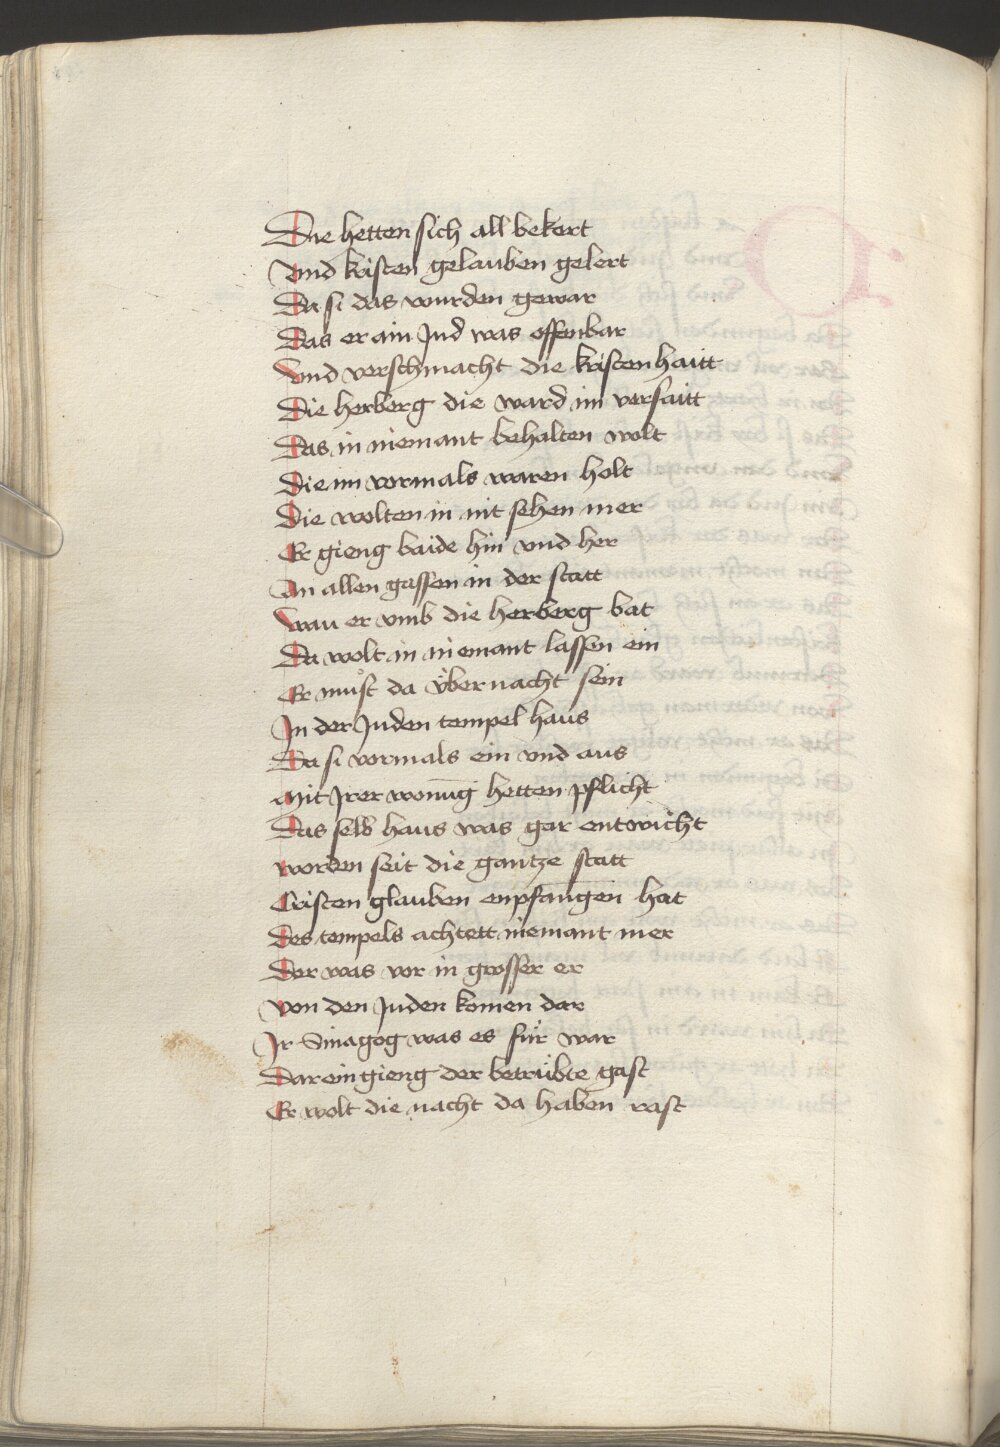 Die hetten sich all bekert
Vnd kristen gelauben gelert
Da si das wurden gewar
Das er ain Jud was offenbar
Vnd verschmacht die kristenhaitt
Die herberg die ward im versaitt
Das in niemant behalten wolt
Die im vormals waren holt
Die wolten in nit sehen mer
Er gieng baide hin vnd her
An allen gassen in der statt
Wau er vmb die herberg bat
Da wolt in niemant lassen ein
Er muͦst da v̈ber nacht sein
In der Juden tempel haus
Da si vormals ein vnd aus
Mit Jrer wonūg hetten pflicht
Das selb haus was gar entwicht
worden seit die gantze statt
Cristen glauben enpfangen hat
Des tempels achtett niemant mer
Der was vor in grosser er
Von den Juden komen dar
Jr Sinagog was es für war
Dar ein gieng der betrübte gast
Er wolt die nacht da haben rast